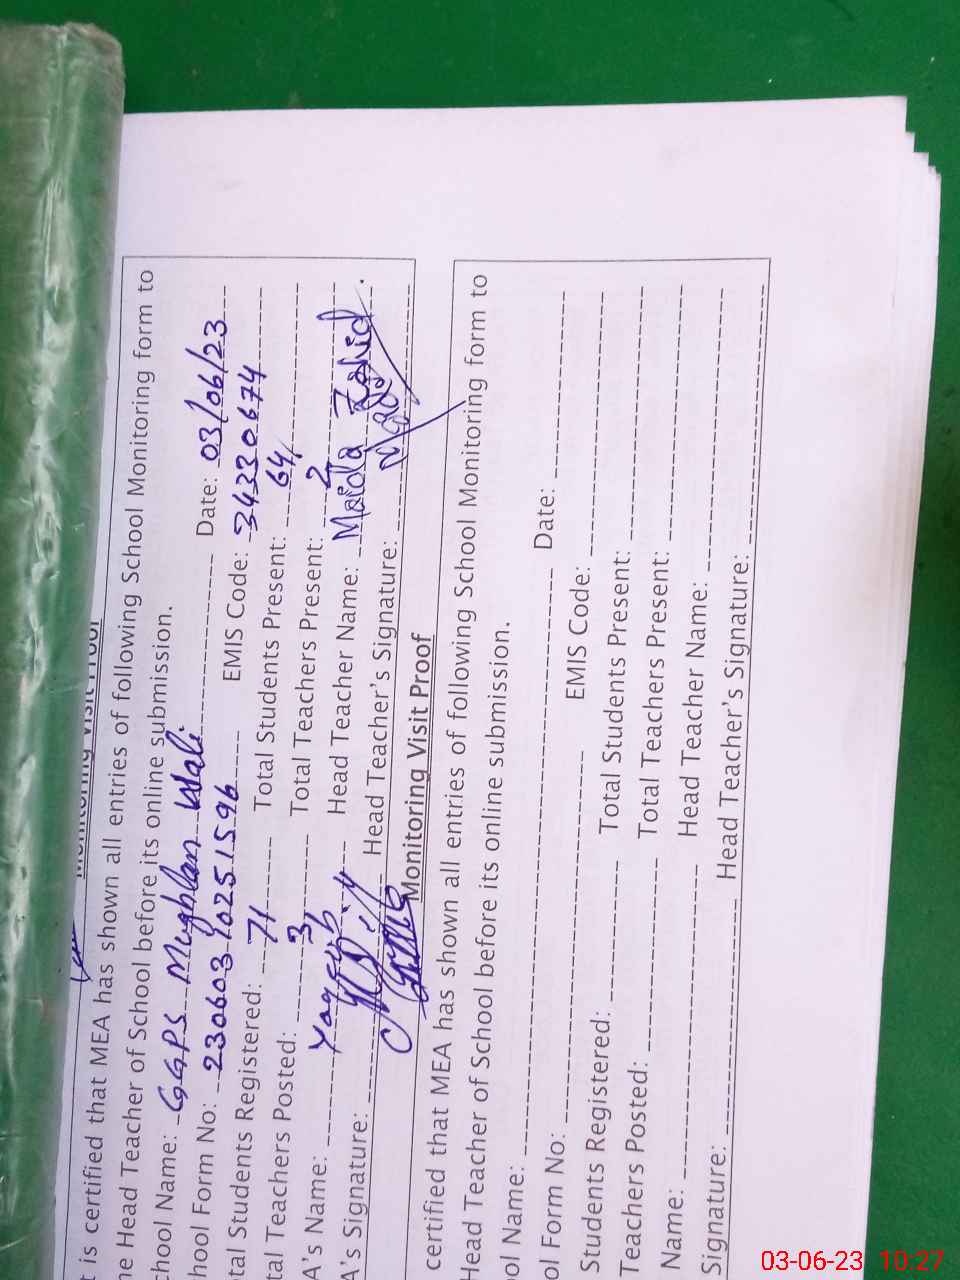 Monitoring Visit Proof
t is certified that MEA has shown all entries of following School Monitoring form to
he Head Teacher of School before its online submission.
chool Name: GGPS Mughlan Wali Date: 03/06/23
hool Form No: 230603 10251596 EMIS Code: 34330674
tal Students Registered: 71 Total Students Present: 64
tal Teachers Posted: 3 Total Teachers Present: 2
A's Name: Head Teacher Name: Zahid
A's Signature: Head Teacher's Signature:
Monitoring Visit Proof
certified that MEA has shown all entries of following School Monitoring form to
Head Teacher of School before its online submission.
ool Name: Date:
ol Form No: EMIS Code:
Students Registered: Total Students Present:
Teachers Posted: Total Teachers Present:
Name: Head Teacher Name:
Signature: Head Teacher's Signature:
03-06-23 10:27